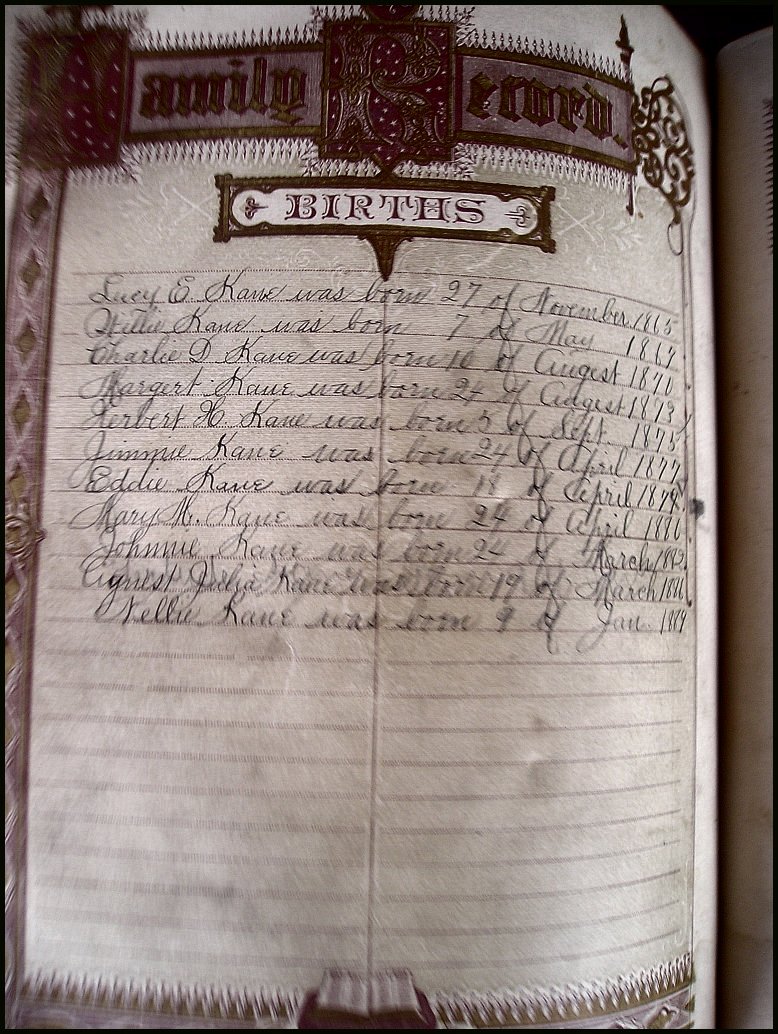 Family Record.
BIRTHS
Lucy E. Kane was born 27 of November 1865
Willie Kane was born 7 of May
Charlie D. Kane was born 10 of Augest 1870
Margert Kane was born 24 of Augest 1873
Herbert H. Kane was born 5 of Sept. 1875
Jimmie Kane was born 24 of April 1877
Eddie Kane was born 18 of April
Mary M. Kane was born 24 of April 1880
Johnnie Kane was born 24 of March 1882
Agnest Julia Kane was born 19 of March
Nellie Kane was born 9 of Jan. 1889